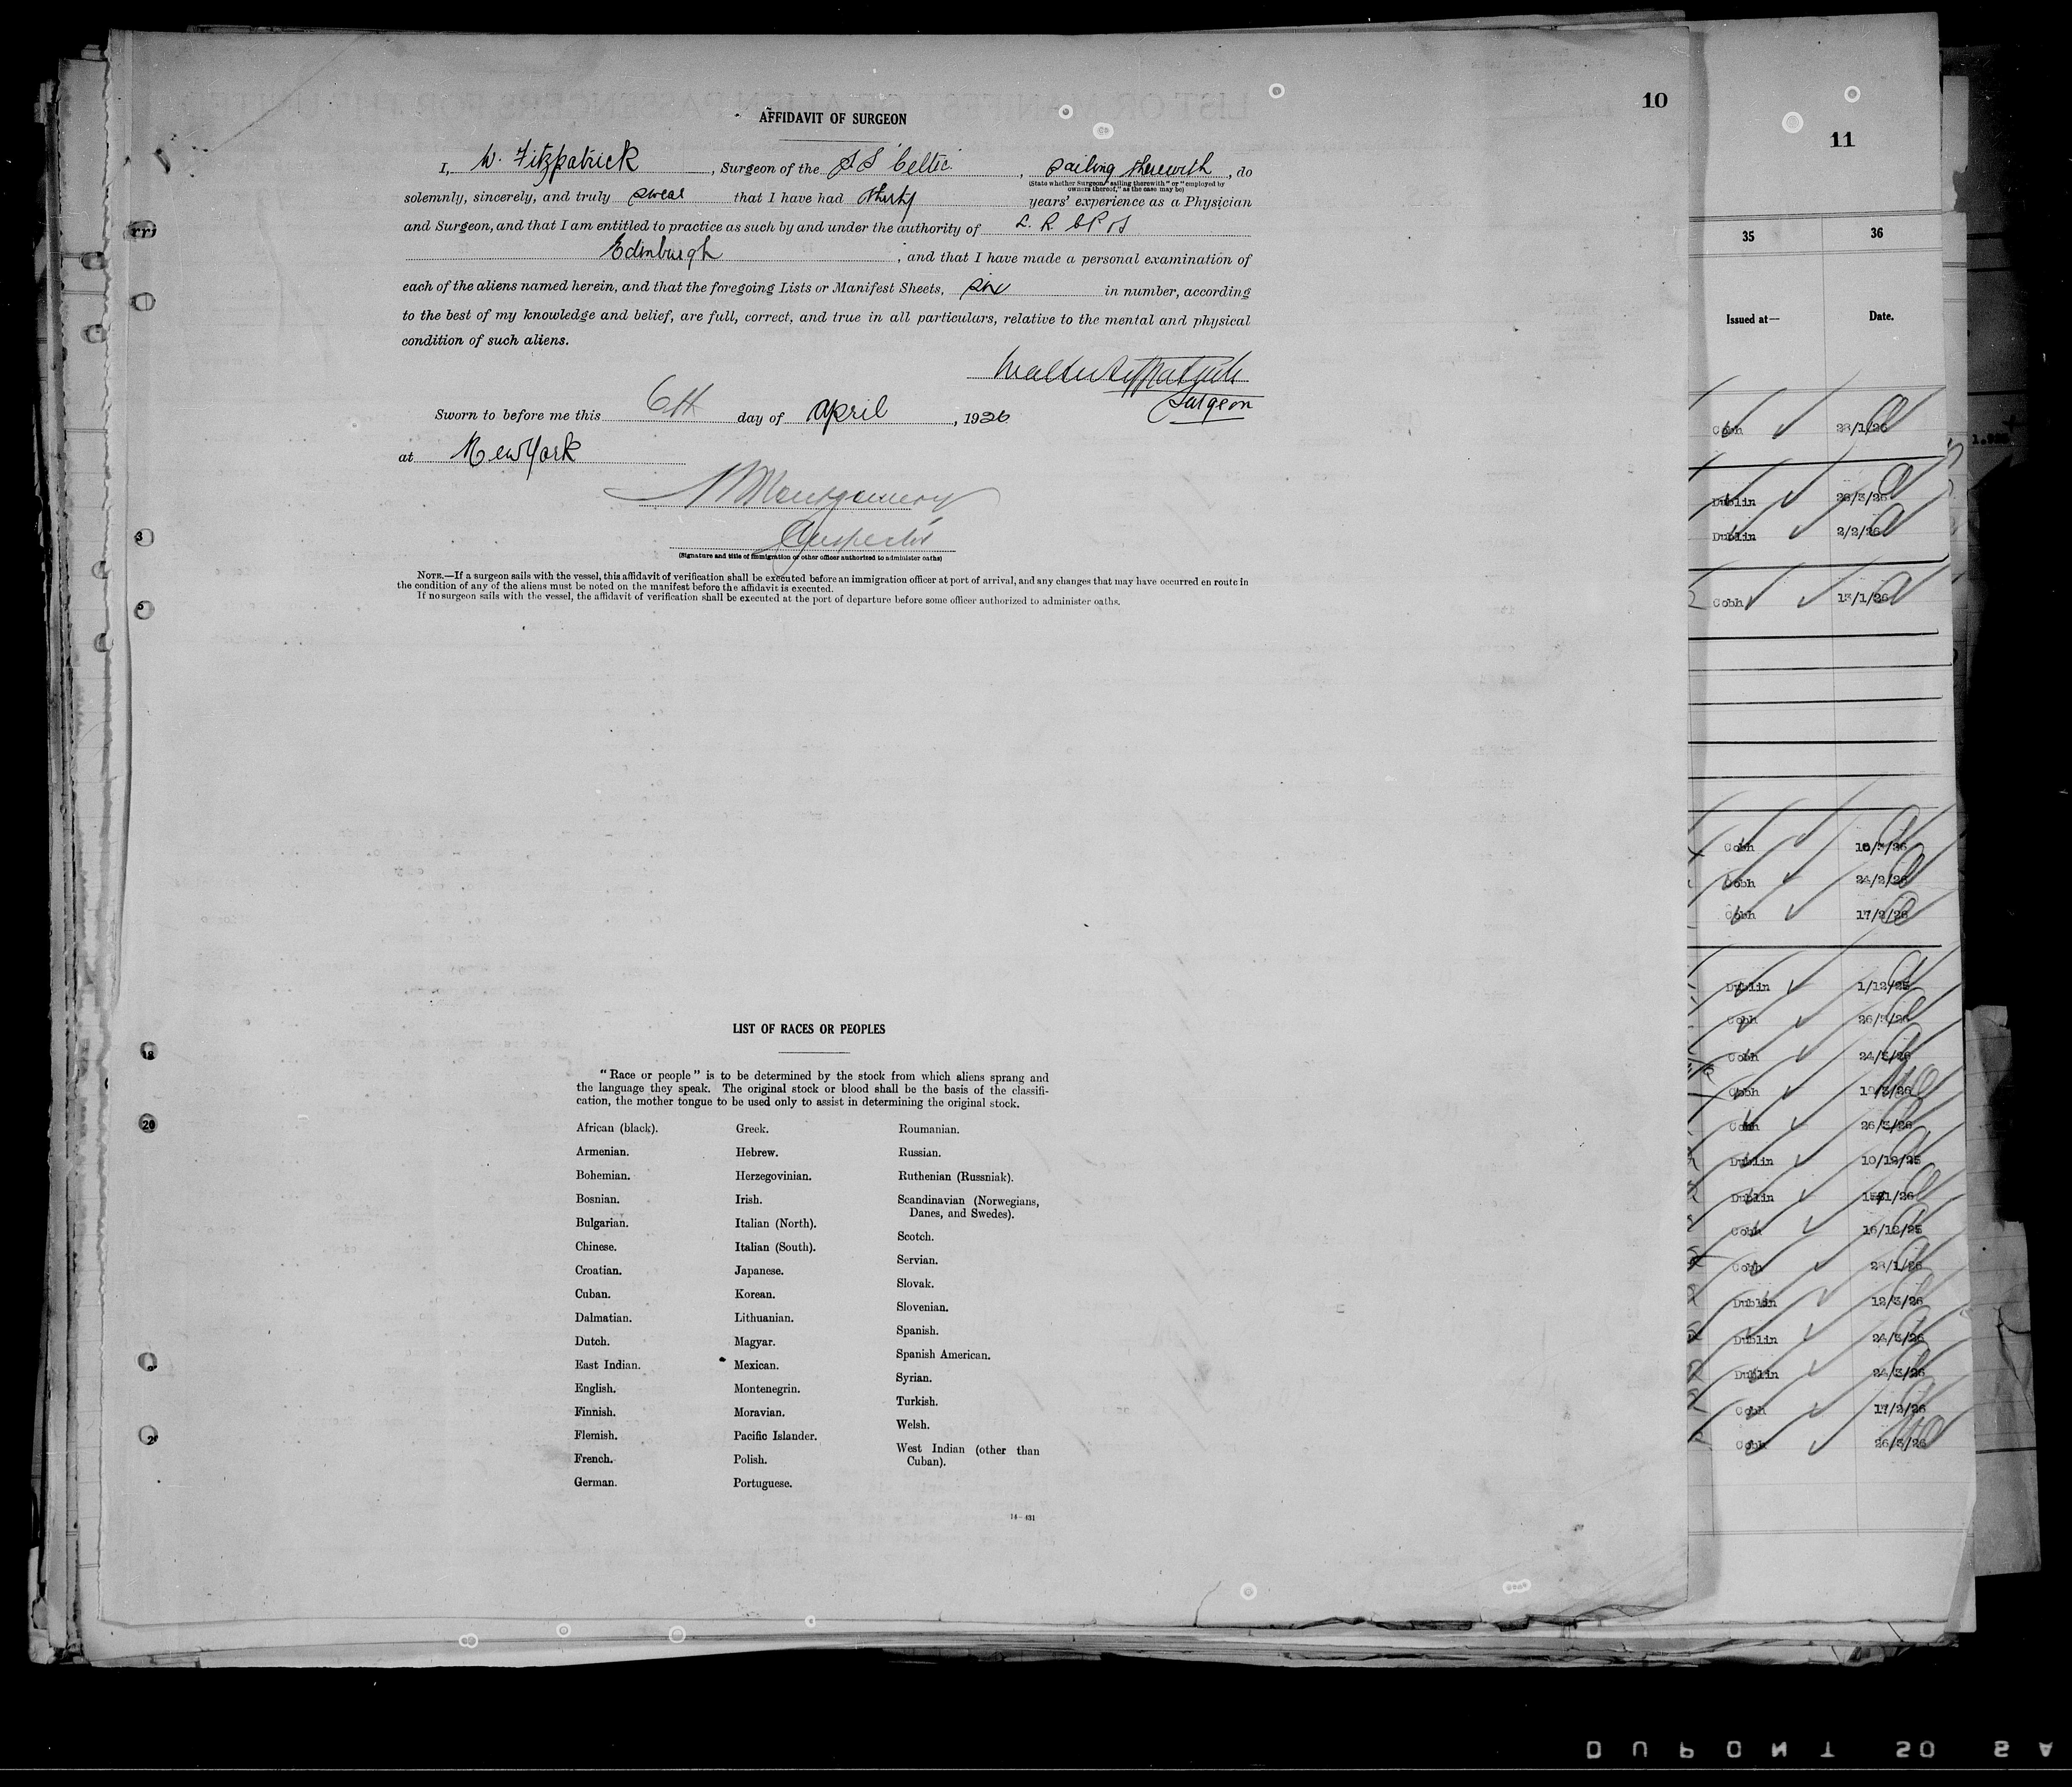 10
AFFIDAVIT OF SURGEON
I, W. Fitzpatrick, Surgeon of the S.S "Celtic", sailing therewith, do
(State whether Surgeon "sailing therewith" or "employed by
owners thereof," as the case may be)
solemnly, sincerely, and truly swear that I have had thirty years' experience as a Physician
and Surgeon, and that I am entitled to practice as such by and under the authority of L. R C P S
Edinburgh, and that I have made a personal examination of
each of the aliens named herein, and that the foregoing Lists or Manifest Sheets, six in number, according
to the best of my knowledge and belief, are full, correct, and true in all particulars, relative to the mental and physical
condition of such aliens.
Walter Fitzpatrick
Surgeon
Sworn to before me this 6th day of April, 1926
at New York
Montgomery
Inspector
(Signature and title of immigration or other officer authorized to administer oaths)
NOTE.—If a surgeon sails with the vessel, this affidavit of verification shall be executed before an immigration officer at port of arrival, and any changes that may have occurred en route in
the condition of any of the aliens must be noted on the manifest before the affidavit is executed.
If no surgeon sails with the vessel, the affidavit of verification shall be executed at the port of departure before some officer authorized to administer oaths.
LIST OF RACES OR PEOPLES
"Race or people" is to be determined by the stock from which aliens sprang and
the language they speak. The original stock or blood shall be the basis of the classifi-
cation, the mother tongue to be used only to assist in determining the original stock.
African (black).
Armenian.
Bohemian.
Bosnian.
Bulgarian.
Chinese.
Croatian.
Cuban.
Dalmatian.
Dutch.
East Indian.
English.
Finnish.
Flemish.
French.
German.
Greek.
Hebrew.
Herzegovinian.
Irish.
Italian (North).
Italian (South).
Japanese.
Korean.
Lithuanian.
Magyar.
Mexican.
Montenegrin.
Moravian.
Pacific Islander.
Polish.
Portuguese.
Roumanian.
Russian.
Ruthenian (Russniak).
Scandinavian (Norwegians,
Danes, and Swedes).
Scotch.
Servian.
Slovak.
Slovenian.
Spanish.
Spanish American.
Syrian.
Turkish.
Welsh.
West Indian (other than
Cuban).
14—431
11
35 36
Issued at— Date.
Cobh 28/1/26
Dublin 26/3/26
Dublin 2/2/26
Cobh 13/1/26
Cobh
Cobh 24/2/26
Cobh 17/2/26
Dublin 1/12/25
Cobh 26/3/26
Cobh 24/3/26
Cobh 19/3/26
Cobh 26/3/26
Dublin 10/12/25
Dublin
Cobh 16/12/25
Cobh 28/1/26
Dublin 12/3/26
Dublin 24/3/26
Dublin 24/3/26
Cobh 17/2/26
Cobh 26/3/26
3
5
18
20
DUPONT 50 SA